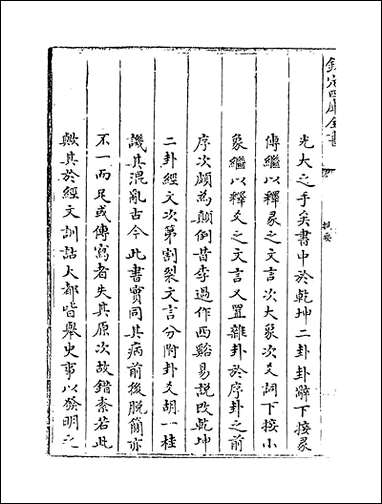 欽定四庫全書
提要
光大之手矣書中於乾坤二卦卦辭下接彖
傳繼以釋彖之文言次大象次爻詞下接小
象繼以釋爻之文言又置雜卦於序卦之前
序次頗為顛倒昔李過作西谿易說改乾坤
二卦經文次第割裂文言分附卦爻胡一桂
譏其混亂古今此書實同其病前後脫簡亦
不一而足或傳寫者失其原次故錯紊若此
歟其於經文訓詁大都皆舉史事以發明之